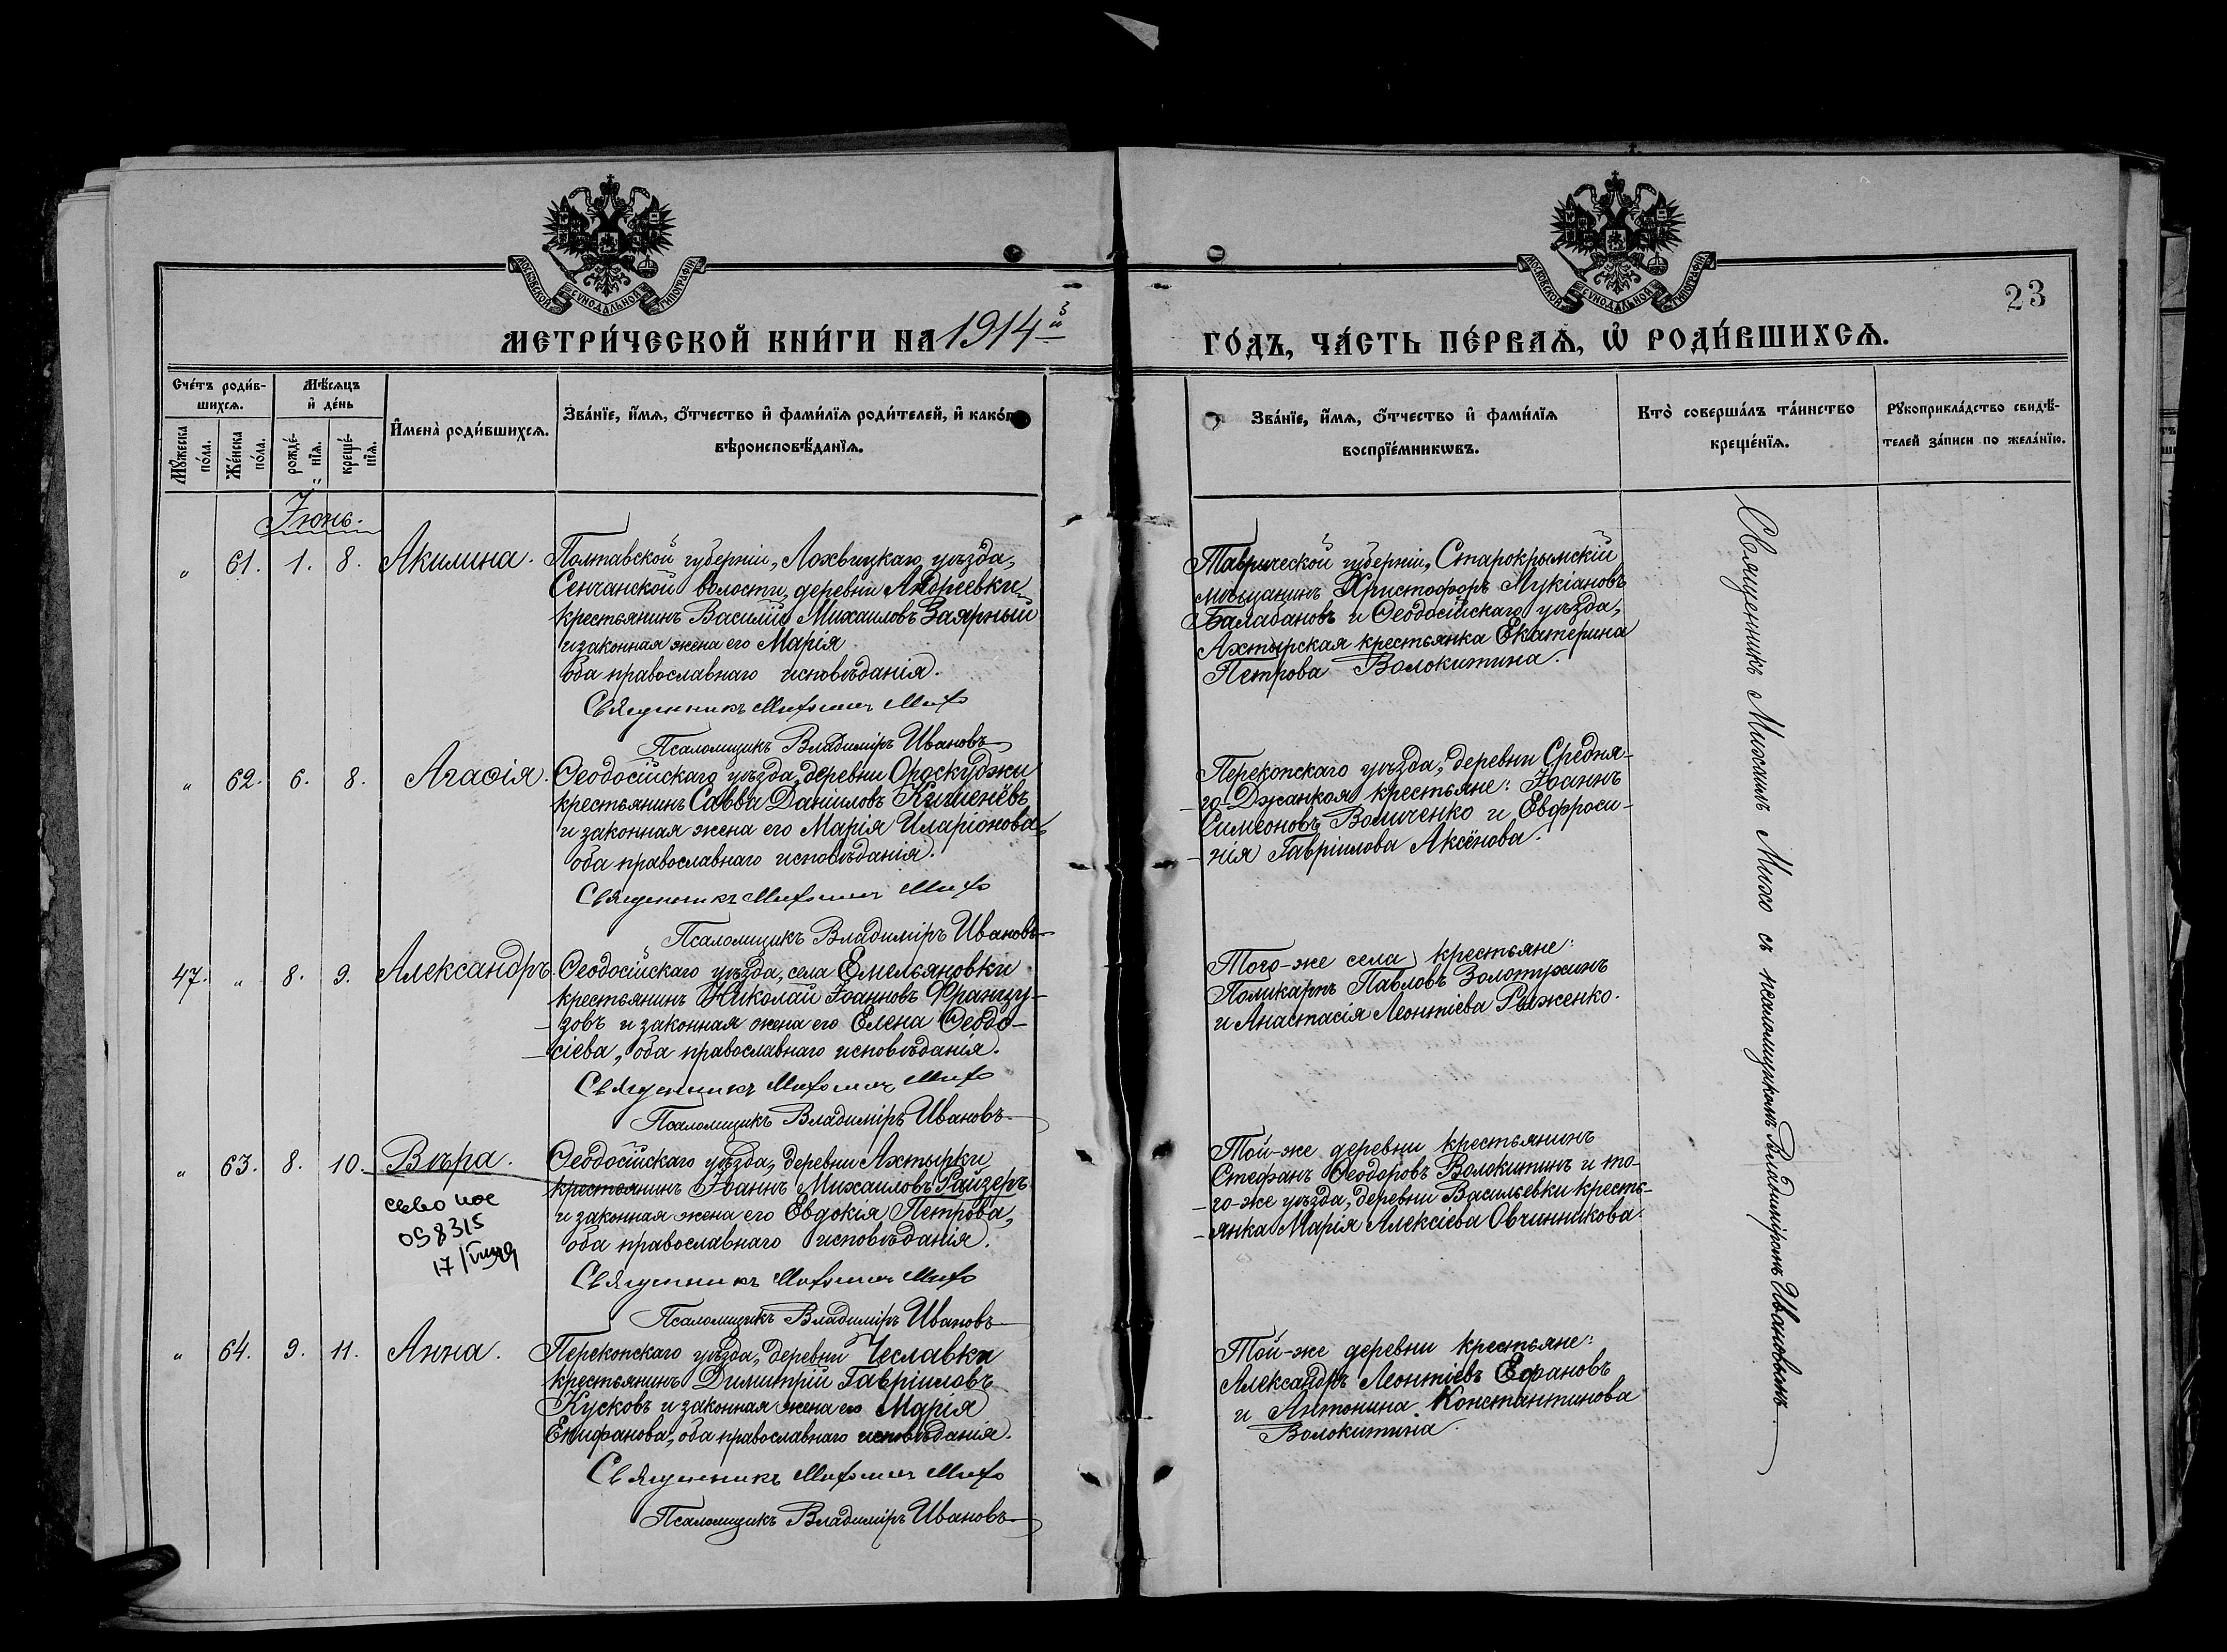 МОСКОВСКОЙ СУНОДАЛЬНОЙ ТИПОГРАФІИ
МОСКОВСКОЙ СУНОДАЛЬНОЙ ТИПОГРАФІИ
23
МЕТРИ́ЧЕСКОЙ КНИ́ГИ НА 1914й
ГО́ДЪ, ЧА́СТЬ ПЕ́РВАѦ, Ѡ҆ РОДИ́ВШИХСѦ.
Сче́тъ роди́в-
шихсѧ.
Мꙋ́жеска по́ла.
Же́нска по́ла.
Мѣ́сѧцъ
и҆ де́нь
рожде́-
нїѧ.
креще́-
нїѧ.
И҆мена̀ роди́вшихсѧ.
Зва́нїе, и҆́мѧ, ѻ҆́тчество и҆ фами́лїѧ роди́телей, и҆ како́гѡ
вѣроисповѣ́данїѧ.
Зва́нїе, и҆́мѧ, ѻ҆́тчество и҆ фами́лїѧ
воспрїе́мникѡвъ.
Кто̀ соверша́лъ та́инство
креще́нїѧ.
Рꙋкоприкла́дство свидѣ́-
телей за́писи по жела́нїю.
Іюнь.
" 61. 1. 8. Акилина.
Полтавской губерніи, Лохвицкаго уѣзда,
Сенчанской волости, деревни Андреевки
крестьянинъ Василій Михаиловъ Заярный
и законная жена его Марія
оба православнаго исповѣданія.
Священникъ Михаилъ Михо
Псаломщикъ Владиміръ Ивановъ
Таврической губерніи, Старокрымскій
мѣщанинъ Христофоръ Мукіановъ
Балабановъ и Ѳеодосійскаго уѣзда,
Ахтырская крестьянка Екатерина
Петрова Волокитина.
" 62. 6. 8. Агаѳія.
Ѳеодосійскаго уѣзда, деревни Ороскуджи
крестьянинъ Савва Даніиловъ Кишенёвъ
и законная жена его Марія Иларіонова,
оба православнаго исповѣданія.
Священникъ Михаилъ Михо
Псаломщикъ Владиміръ Ивановъ
Перекопскаго уѣзда, деревни Средня-
го-Джанкоя крестьяне: Іоаннъ
Симеоновъ Воличенко и Евфроси-
нія Гавріилова Аксёнова.
47. " 8. 9. Александръ.
Ѳеодосійскаго уѣзда, села Емельяновки
крестьянинъ Николай Іоанновъ Францу-
зовъ и законная жена его Елена Ѳеодо-
сіева, оба православнаго исповѣданія.
Священникъ Михаилъ Михо
Псаломщикъ Владиміръ Ивановъ
Того-же села крестьяне:
Поликарпъ Павловъ Золотухинъ
и Анастасія Леонтіева Рыженко.
" 63. 8. 10. Вѣра.
098315
17/
Ѳеодосійскаго уѣзда, деревни Ахтырки
крестьянинъ Іоаннъ Михаиловъ Райзеръ
и законная жена его Евдокія Петрова,
оба православнаго исповѣданія.
Священникъ Михаилъ Михо
Псаломщикъ Владиміръ Ивановъ
Той-же деревни крестьянинъ
Стефанъ Ѳеодоровъ Волокитинъ и то-
го-же уѣзда, деревни Васильевки кресть-
янка Марія Алексіева Овчинникова.
" 64. 9. 11. Анна.
Перекопскаго уѣзда, деревни Чеславки
крестьянинъ Димитрій Гавріиловъ
Кусковъ и законная жена его Марія
Епифанова, оба православнаго исповѣданія.
Священникъ Михаилъ Михо
Псаломщикъ Владиміръ Ивановъ
Той-же деревни крестьяне:
Александръ Леонтіевъ Ефановъ
и Антонина Константинова
Волокитина.
Священникъ Михаилъ Михо съ псаломщикомъ Владиміромъ Ивановымъ